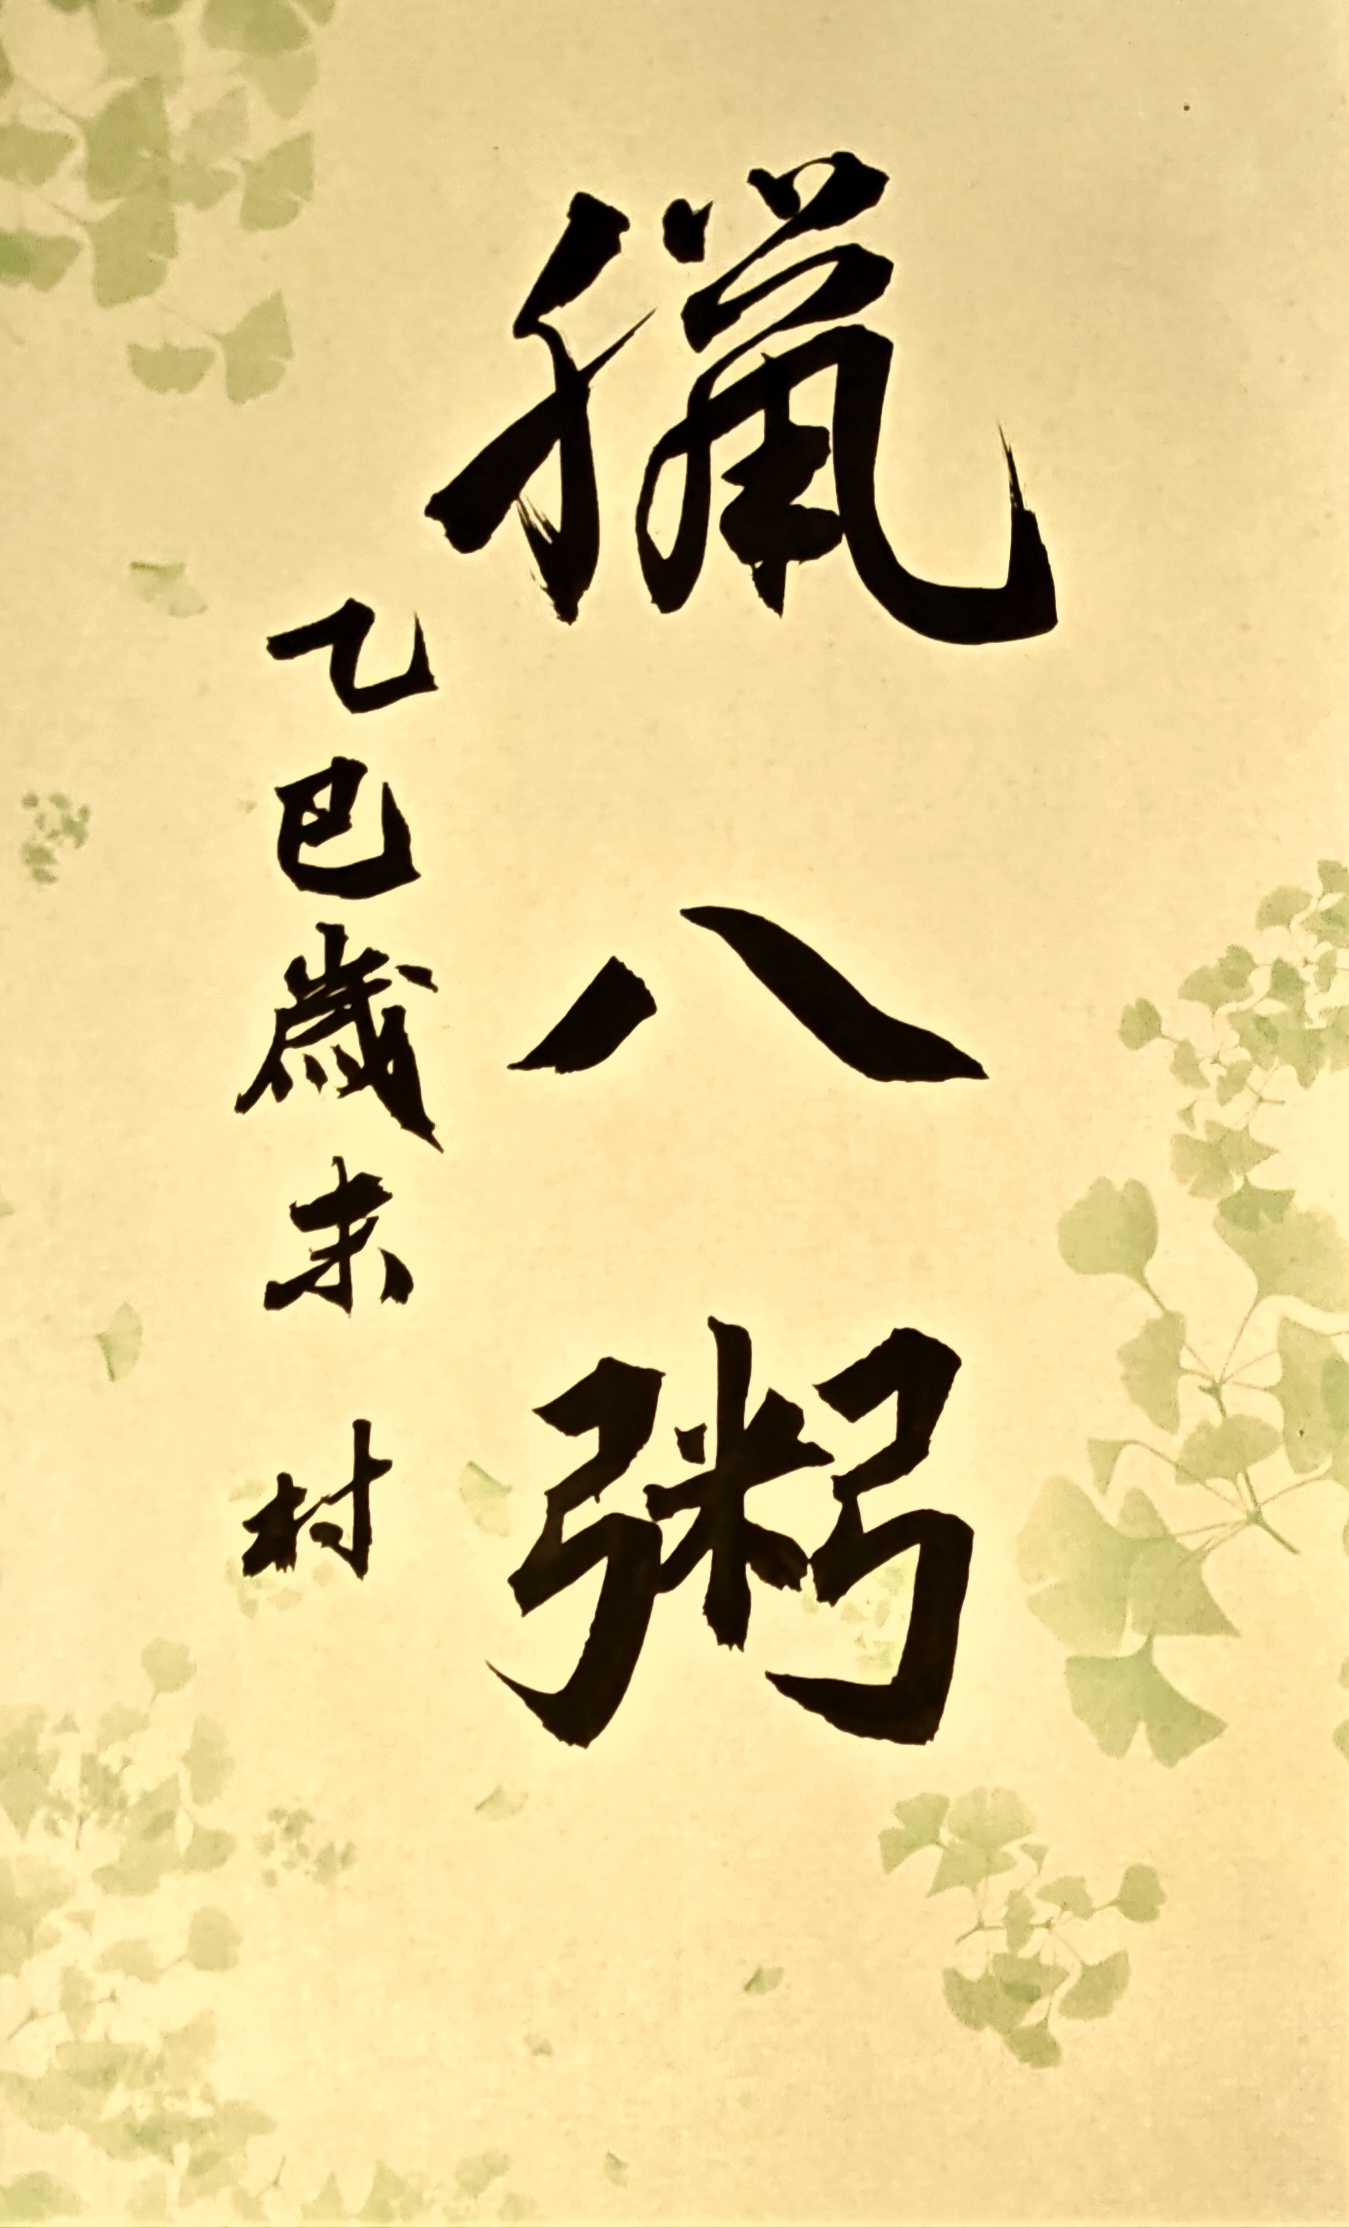 獵八粥
乙巳歲末 村